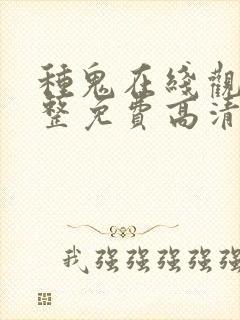 種鬼在綫觀
整免費高清
我强强强强强